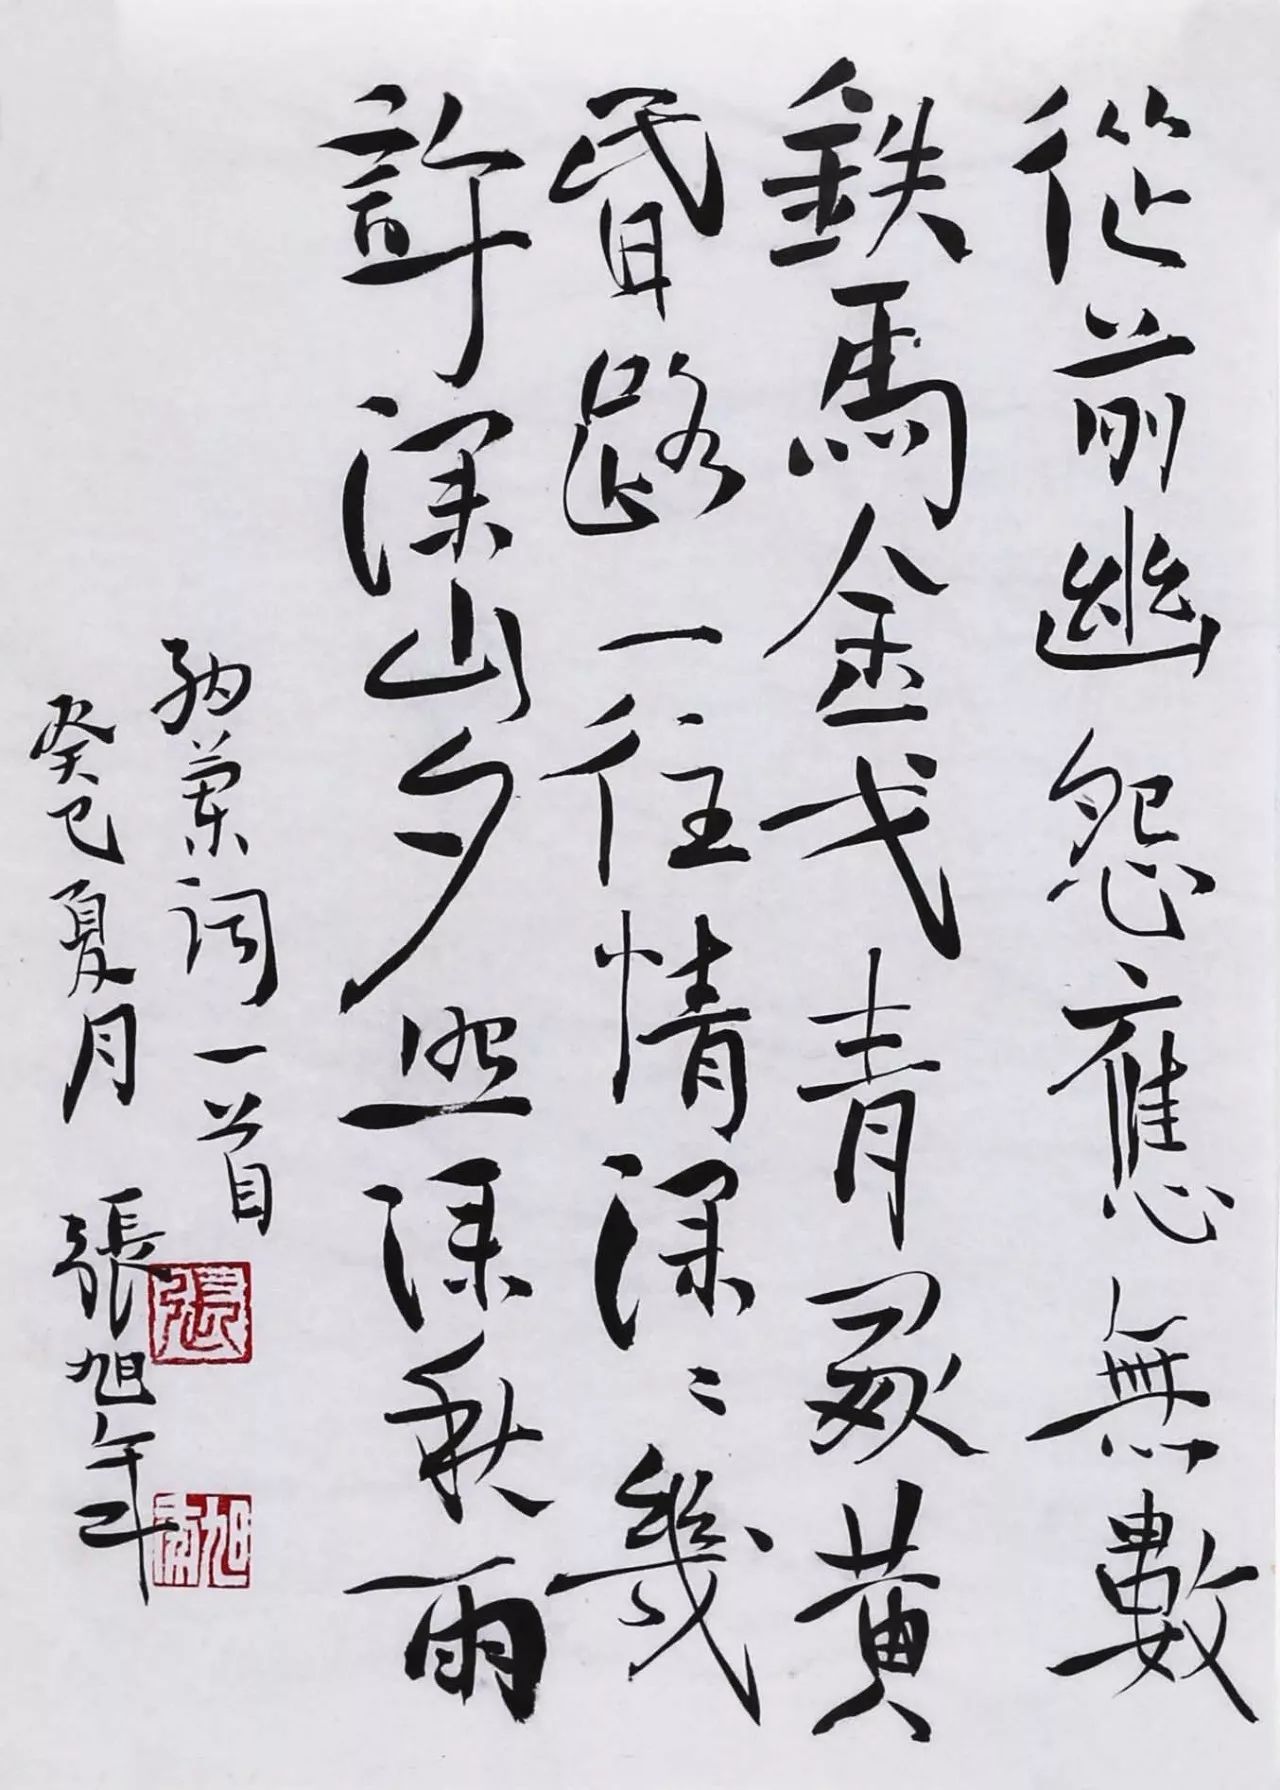 從前幽怨應無數
鉄馬金戈青冢黃
昏路一往情深〻幾
許深山夕照深秋雨
納蘭詞一首
癸巳夏月 張旭年
張
旭